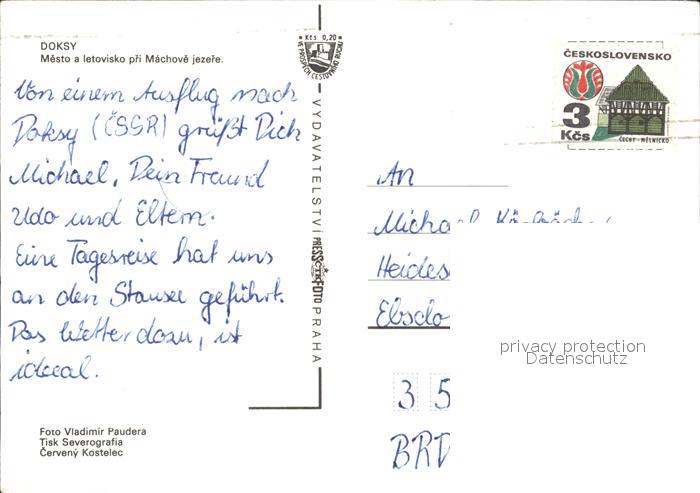 DOKSY
Město a letovisko při Máchově jezeře.
Von einem Ausflug nach
Doksy (ČSSR) grüßt Dich
Michael, Dein Freund
Udo und Eltern.
Eine Tagesreise hat uns
an den Stausee geführt.
Das Wetter dazu, ist
ideal.
Foto Vladimír Paudera
Tisk Severografia
Červený Kostelec
Kčs 0,20
VE PROSPĚCH CESTOVNÍHO RUCHU
VYDAVATELSTVÍ PRESSFOTO PRAHA
ČESKOSLOVENSKO
3
Kčs
ČECHY - MĚLNICKO
An
Heides
Ebsdo
3 5
BRD
privacy protection
Datenschutz